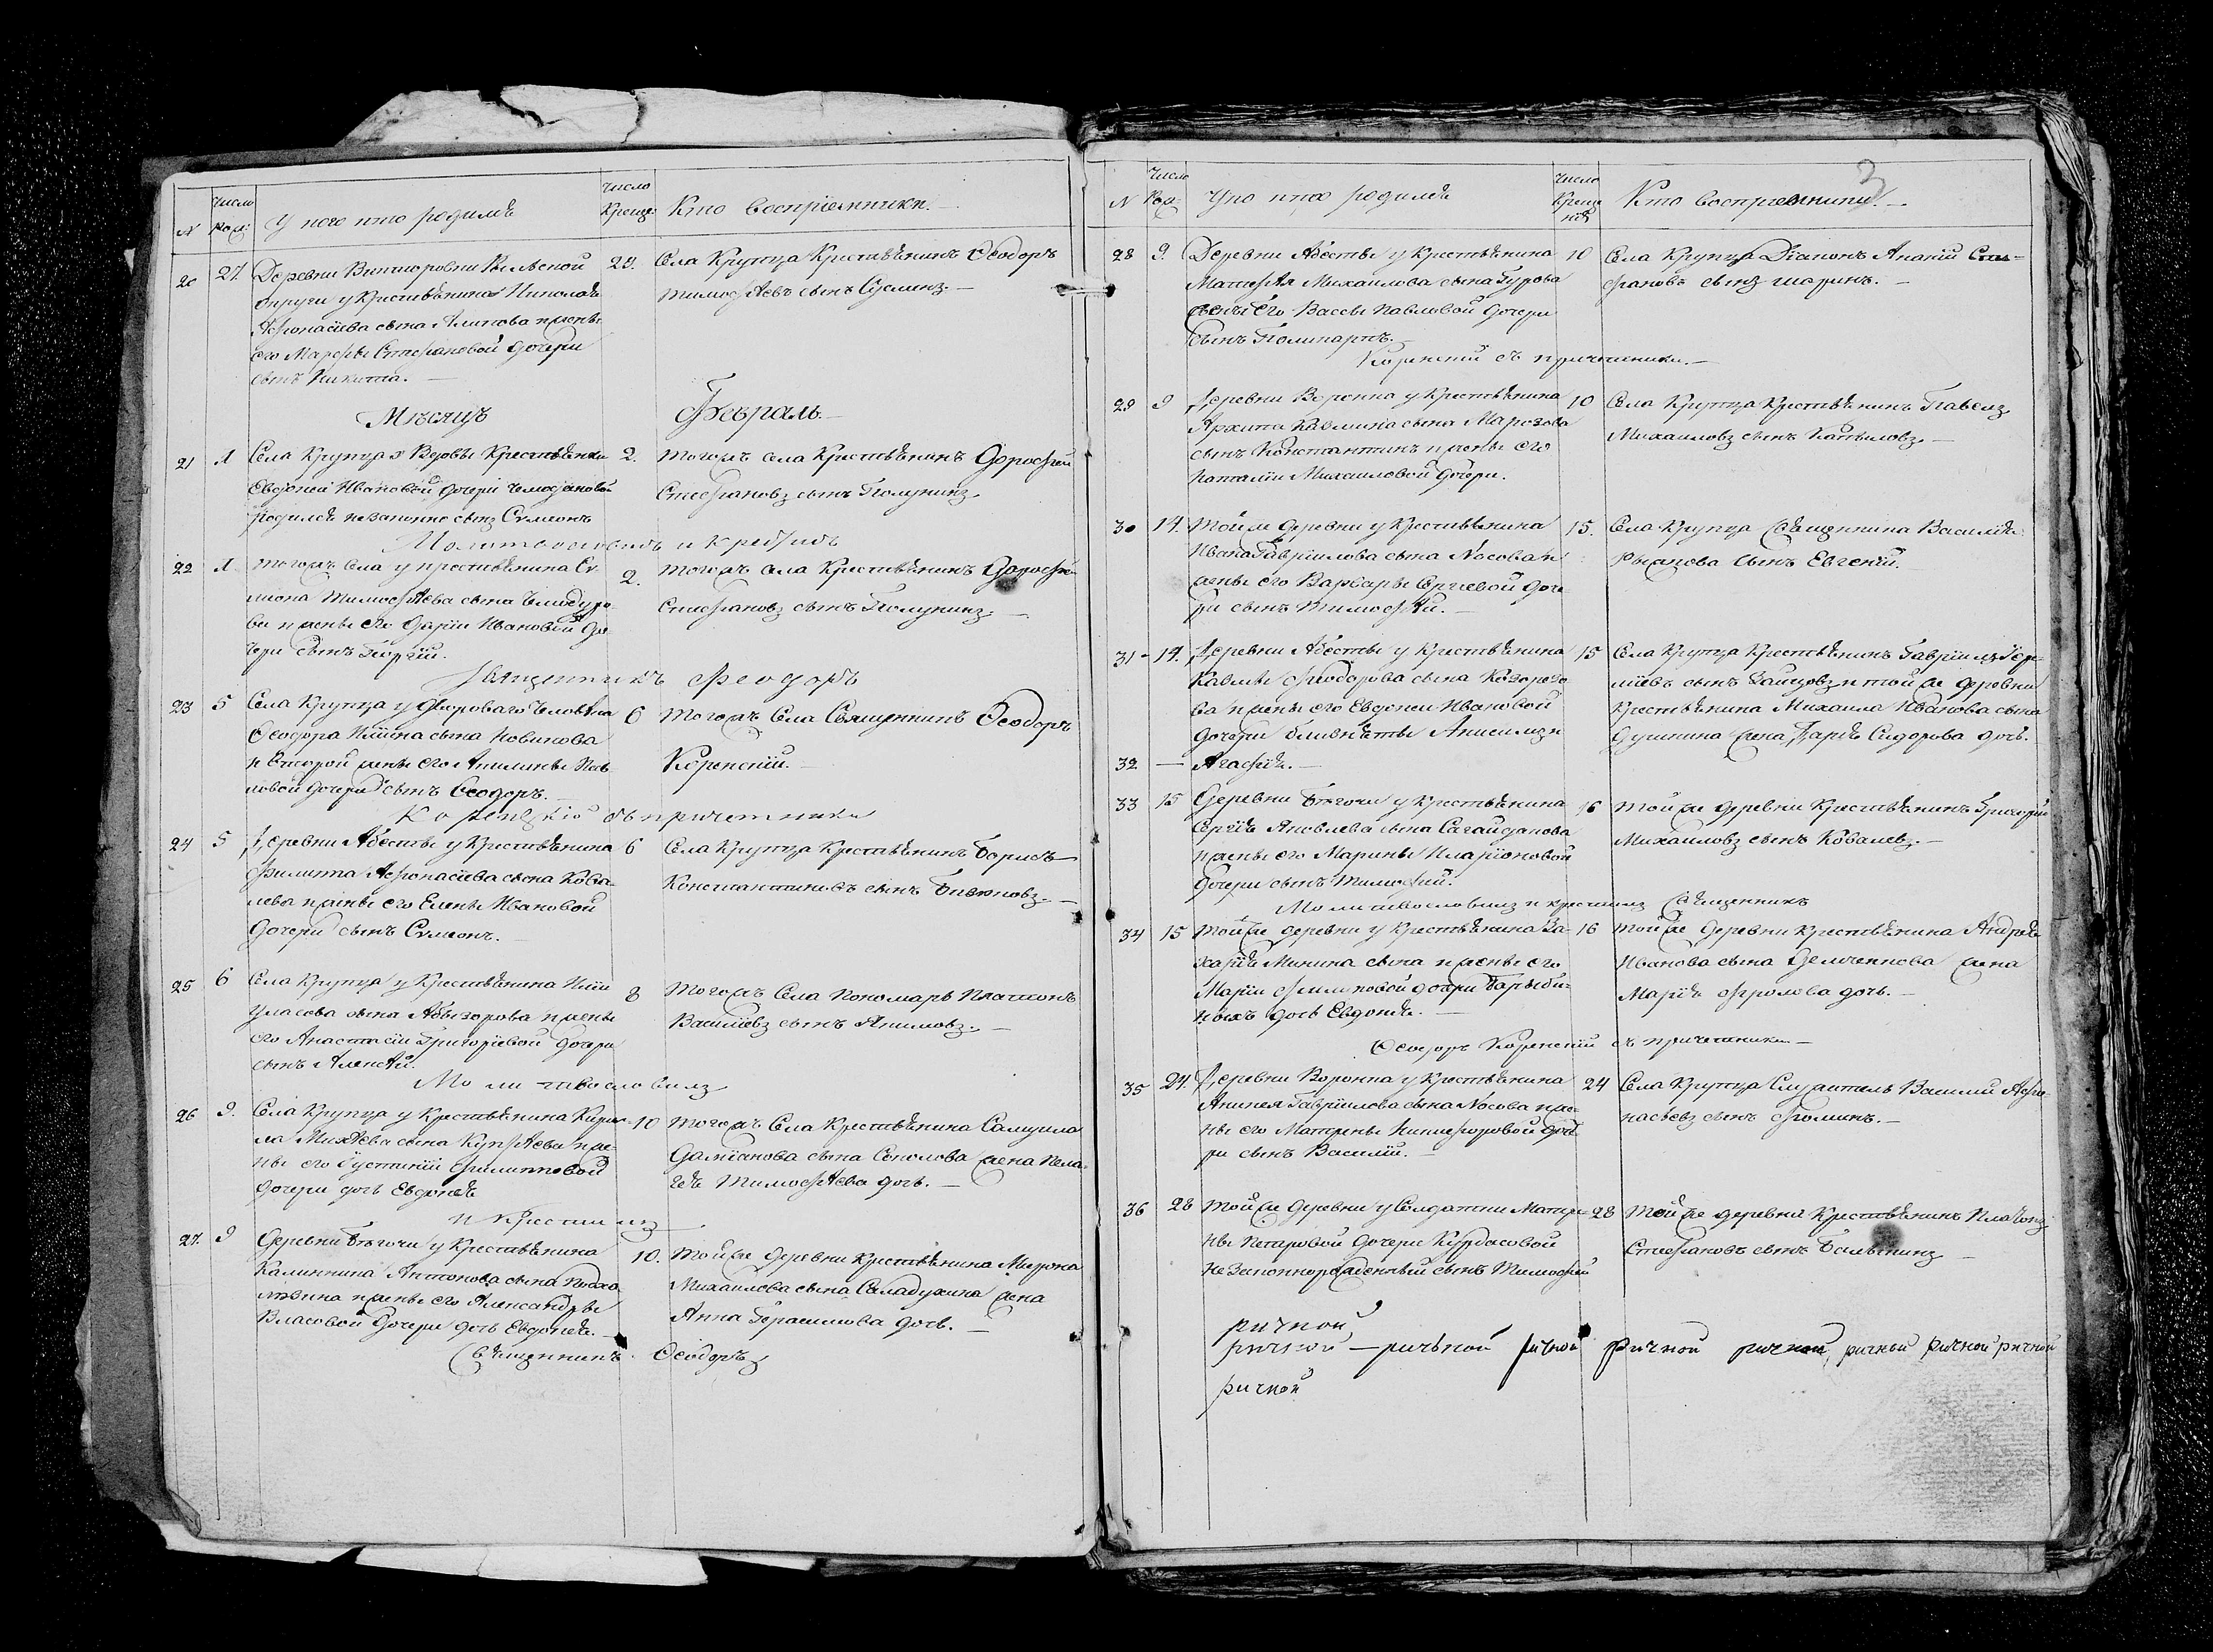 N
Число
Рож:
У кого кто родился
Число
Креще:
Кто воспріемники.
20
27
Деревни Викторовки Рыльской
округи у крестьянина Николая
Афонасіева сына Алипова и жены
его Марфы Стефановой дочери
сынъ Никита.
29.
Села Крупца Крестьянинъ Ѳеодоръ
Тимофѣевъ сынъ
Мѣсяцъ
Февраль
21
1
Села Крупца у Вдовы Крестьянки
Евдокеи Ивановой дочери
родился незаконно сынъ Сѵмеонъ
2.
Тогожъ села Крестьянинъ Дорофей
Стефановъ сынъ Полунинъ
Молитвословилъ и крестилъ
22
1
Тогожъ села у крестьянина Сѵ-
меона Тимофѣева сына
ва и жены его Даріи Ивановой до-
чери сынъ Георгій.
2.
Тогожъ села Крестьянинъ Дорофей
Стефановъ сынъ Полунинъ.
Священникъ Феодоръ
23
5
Села Крупца у двороваго человѣка
Ѳеодора Ильина сына Новикова
и второй жены его Акилины Пав-
ловой дочери сынъ Ѳеодоръ.
6
Тогожъ Села Священникъ Ѳеодоръ
Коренскій.
съ причетники
24
5
Деревни Абесты у Крестьянина
Филиппа Афонасіева сына Кова-
лева и жены его Елены Ивановой
дочери сынъ Сѵмеонъ.
6
Села Крупца Крестьянинъ Борисъ
Константиновъ сынъ
25
6
Села Крупца у Крестьянина Иліи
Уласова сына и жены
его Анастасіи Григоріевой дочери
сынъ Алексѣй.
8
Тогожъ Села Пономарь Платонъ
Василіевъ сынъ Якимовъ.
Молитвословилъ
26
9.
Села Крупца у Крестьянина Кирил-
ла Михѣева сына Купрѣева и же-
ны его Іустиніи Филипповой
дочери дочь Евдокія
10
Тогожъ Села Крестьянина Самуила
Даміанова сына Соколова жена Пела-
гея Тимофѣева дочь.
и Крестилъ
27.
9
Деревни Бѣгочи у Крестьянина
Калинника Антонова сына
и жены его Александры
Власовой дочери дочь Евдокія.
10.
Той же деревни крестьянина Мирона
Михаилова сына Саладухина жена
Анна Герасимова дочь.
Священникъ Ѳеодоръ
N
Число
Рож:
У кого родился
Число
Креще
нія
Кто воспріемники.
3
28
9.
Деревни Абесты у крестьянина
Матфѣя Михаилова сына Гурова
жены его Вассы Павловой дочери
сынъ Поликарпъ.
10
Села Крупца Діаконъ Ананій Сте-
фановъ сынъ
Коренскій съ причетники.
29
9
Деревни Воронка у Крестьянина
Архипа Кавмина сына Марозова
сынъ Константинъ и жены его
Наталіи Михаиловой дочери.
10
Села Крупца Крестьянинъ Павелъ
Михаиловъ сынъ
30
14.
Той же деревни у крестьянина
Ивана Гавріилова сына Носова и
жены его Варвары Сергіевой доче-
ри сынъ Тимофѣй.
15.
Села Крупца Священника Василія
сынъ Евгеній.
31
14.
Деревни Абесты у крестьянина
Кавмы Феодорова сына
ва и жены его Евдокеи Ивановой
дочери близнѣты Анисимъ и
15
Села Крупца Крестьянинъ Гавріилъ
сынъ Зайцовъ и той же деревни
Крестьянина Михаила Иванова сына
жена Дарья Сидорова дочь.
32
Агафія.
33
15
Деревни Бѣгочи у крестьянина
Сергія Яковлева сына Сагайдакова
и жены его Марины Иларіоновой
дочери сынъ Тимофей.
16
Той же деревни Крестьянинъ Григорій
Михаиловъ сынъ Ковалевъ.
Молитвословилъ и крестилъ Священникъ
34
15
Той же деревни у крестьянина За-
харія Минина сына и жены его
Маріи дочери
дочь Евдокія.
16
Той же деревни крестьянина Андрея
Иванова сына жена
Марія Фролова дочь.
Ѳеодоръ Коренскій съ причетники
35
24.
Деревни Воронка у Крестьянина
Гавріилова сына Носова и же-
ны его Матрены Никифоровой доче-
ри сынъ Василій.
24
Села Крупца Служитель Василій Афо-
насьевъ сынъ Фоминъ.
36
28
Той же деревни у Солдатки Матре-
ны Петаровой дочери Курдасовой
незаконнорожденный сынъ Тимофей
28
Той же деревни Крестьянинъ Платонъ
Стефановъ сынъ
ричной
ричной — ричьной ричной ричной ричной, ричный ричной ричной
ричной